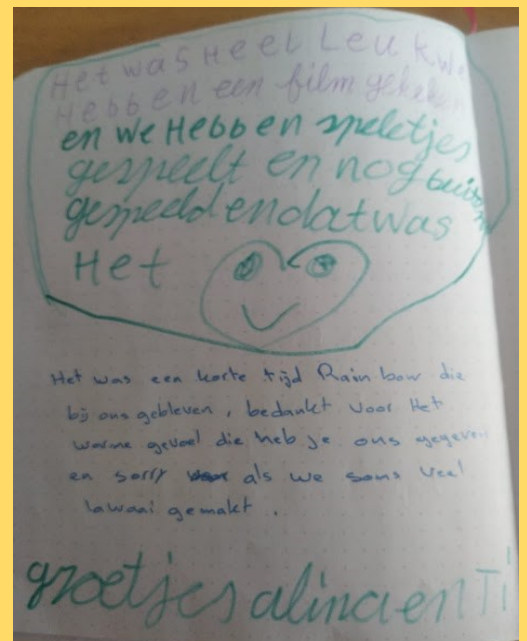 Het was Heel Leuk We
Hebben een film gekeken
en we Hebben speletjes
gespeelt en nog buiten
gespeeld en dat was
Het
Het was een korte tijd Rainbow die
bij ons gebleven, bedankt voor Het
warme gevoel die heb je ons gegeven
en sorry als we soms veel
lawaai gemakt.
groetjes alina en Ti